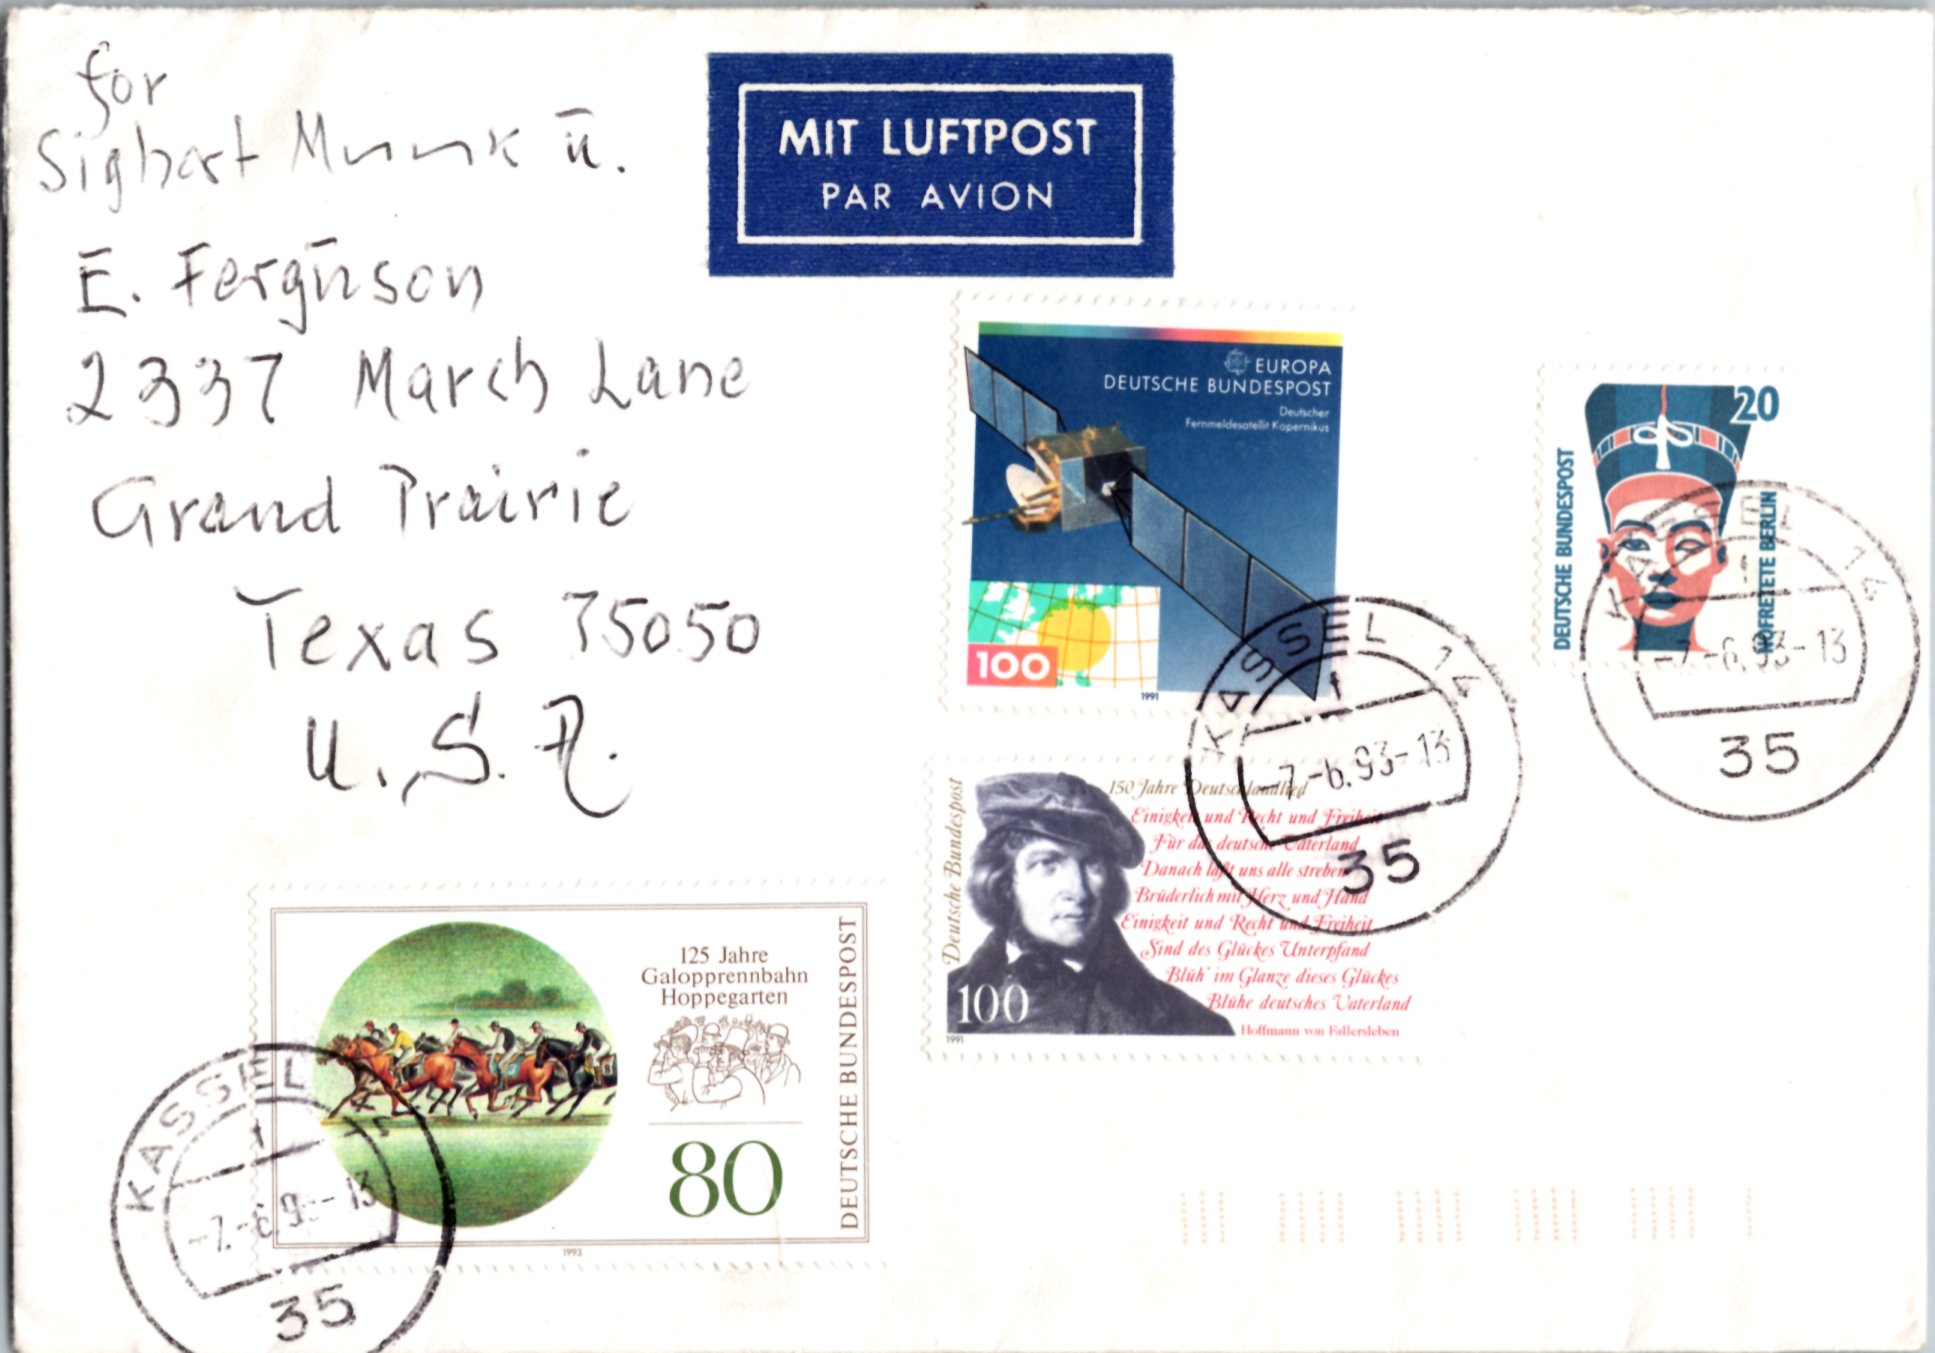 for
Sighart Munk u.
E. Ferguson
2337 March Lane
Grand Prairie
Texas 75050
U.S.A.
MIT LUFTPOST
PAR AVION
EUROPA
DEUTSCHE BUNDESPOST
Deutscher
Fernmeldesatellit Kopernikus
100
1991
20
DEUTSCHE BUNDESPOST
NOFRETETE BERLIN
KASSEL 14
f
-7.-6.93-13
35
KASSEL 14
f
-7.-6.93-13
35
Deutsche Bundespost
150 Jahre Deutschlandlied
Einigkeit und Recht und Freiheit
Für das deutsche Vaterland
Danach laßt uns alle streben
Brüderlich mit Herz und Hand
Einigkeit und Recht und Freiheit
Sind des Glückes Unterpfand
Blüh' im Glanze dieses Glückes
Blühe deutsches Vaterland
Hoffmann von Fallersleben
100
1991
125 Jahre
Galopprennbahn
Hoppegarten
80
DEUTSCHE BUNDESPOST
1993
KASSEL 14
f
-7.-6.93-13
35